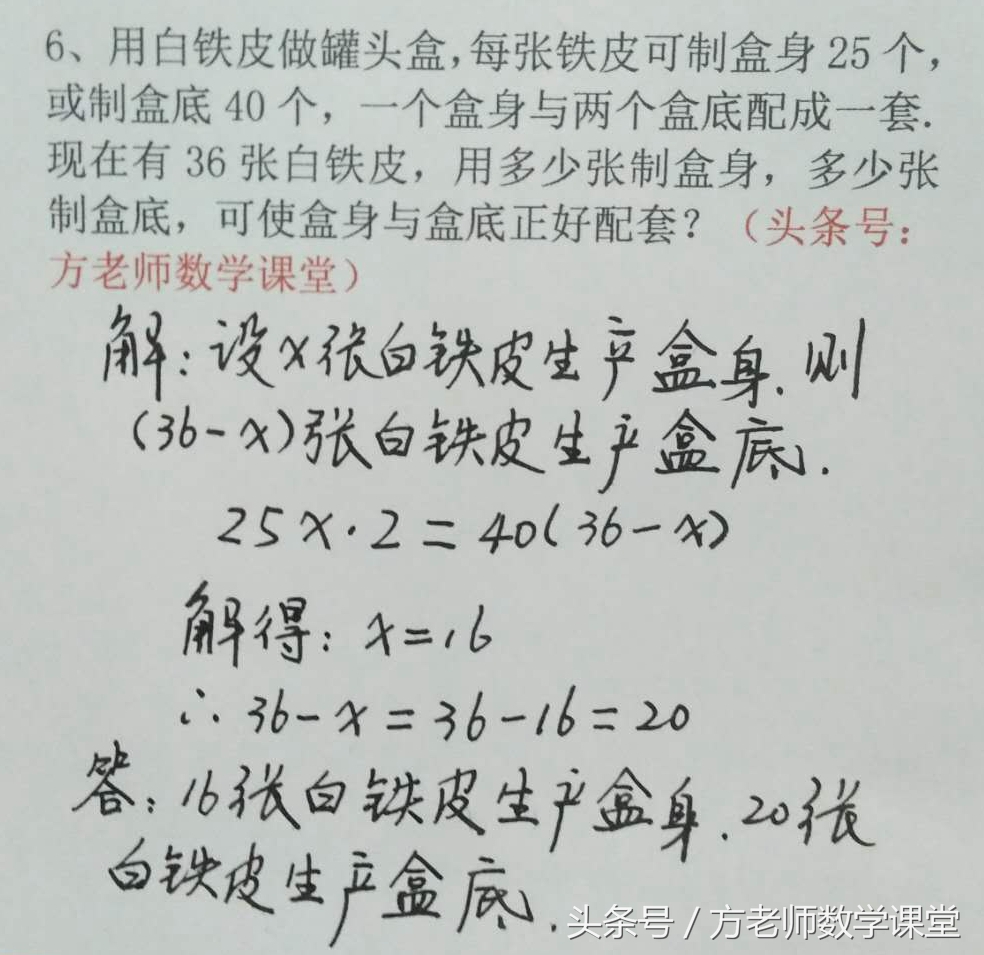 6、用白铁皮做罐头盒,每张铁皮可制盒身25个,
或制盒底40个，一个盒身与两个盒底配成一套.
现在有36张白铁皮，用多少张制盒身，多少张
制盒底，可使盒身与盒底正好配套？（头条号：
方老师数学课堂）
解：设x张白铁皮生产盒身.则
(36-x)张白铁皮生产盒底.
25x·2=40(36-x)
解得：x=16
∴36-x=36-16=20
答：16张白铁皮生产盒身.20张
白铁皮生产盒底.
头条号/方老师数学课堂